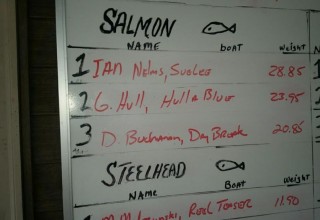 SALMON
NAME BOAT WEIGHT
1 IAN Nelms, 28.85
2 G. Hull, Hulla Blue 23.95
3 D. Buchanan, Day Break 20.85
STEELHEAD
NAME BOAT WEIGHT
1 Reel Teaser 11.90